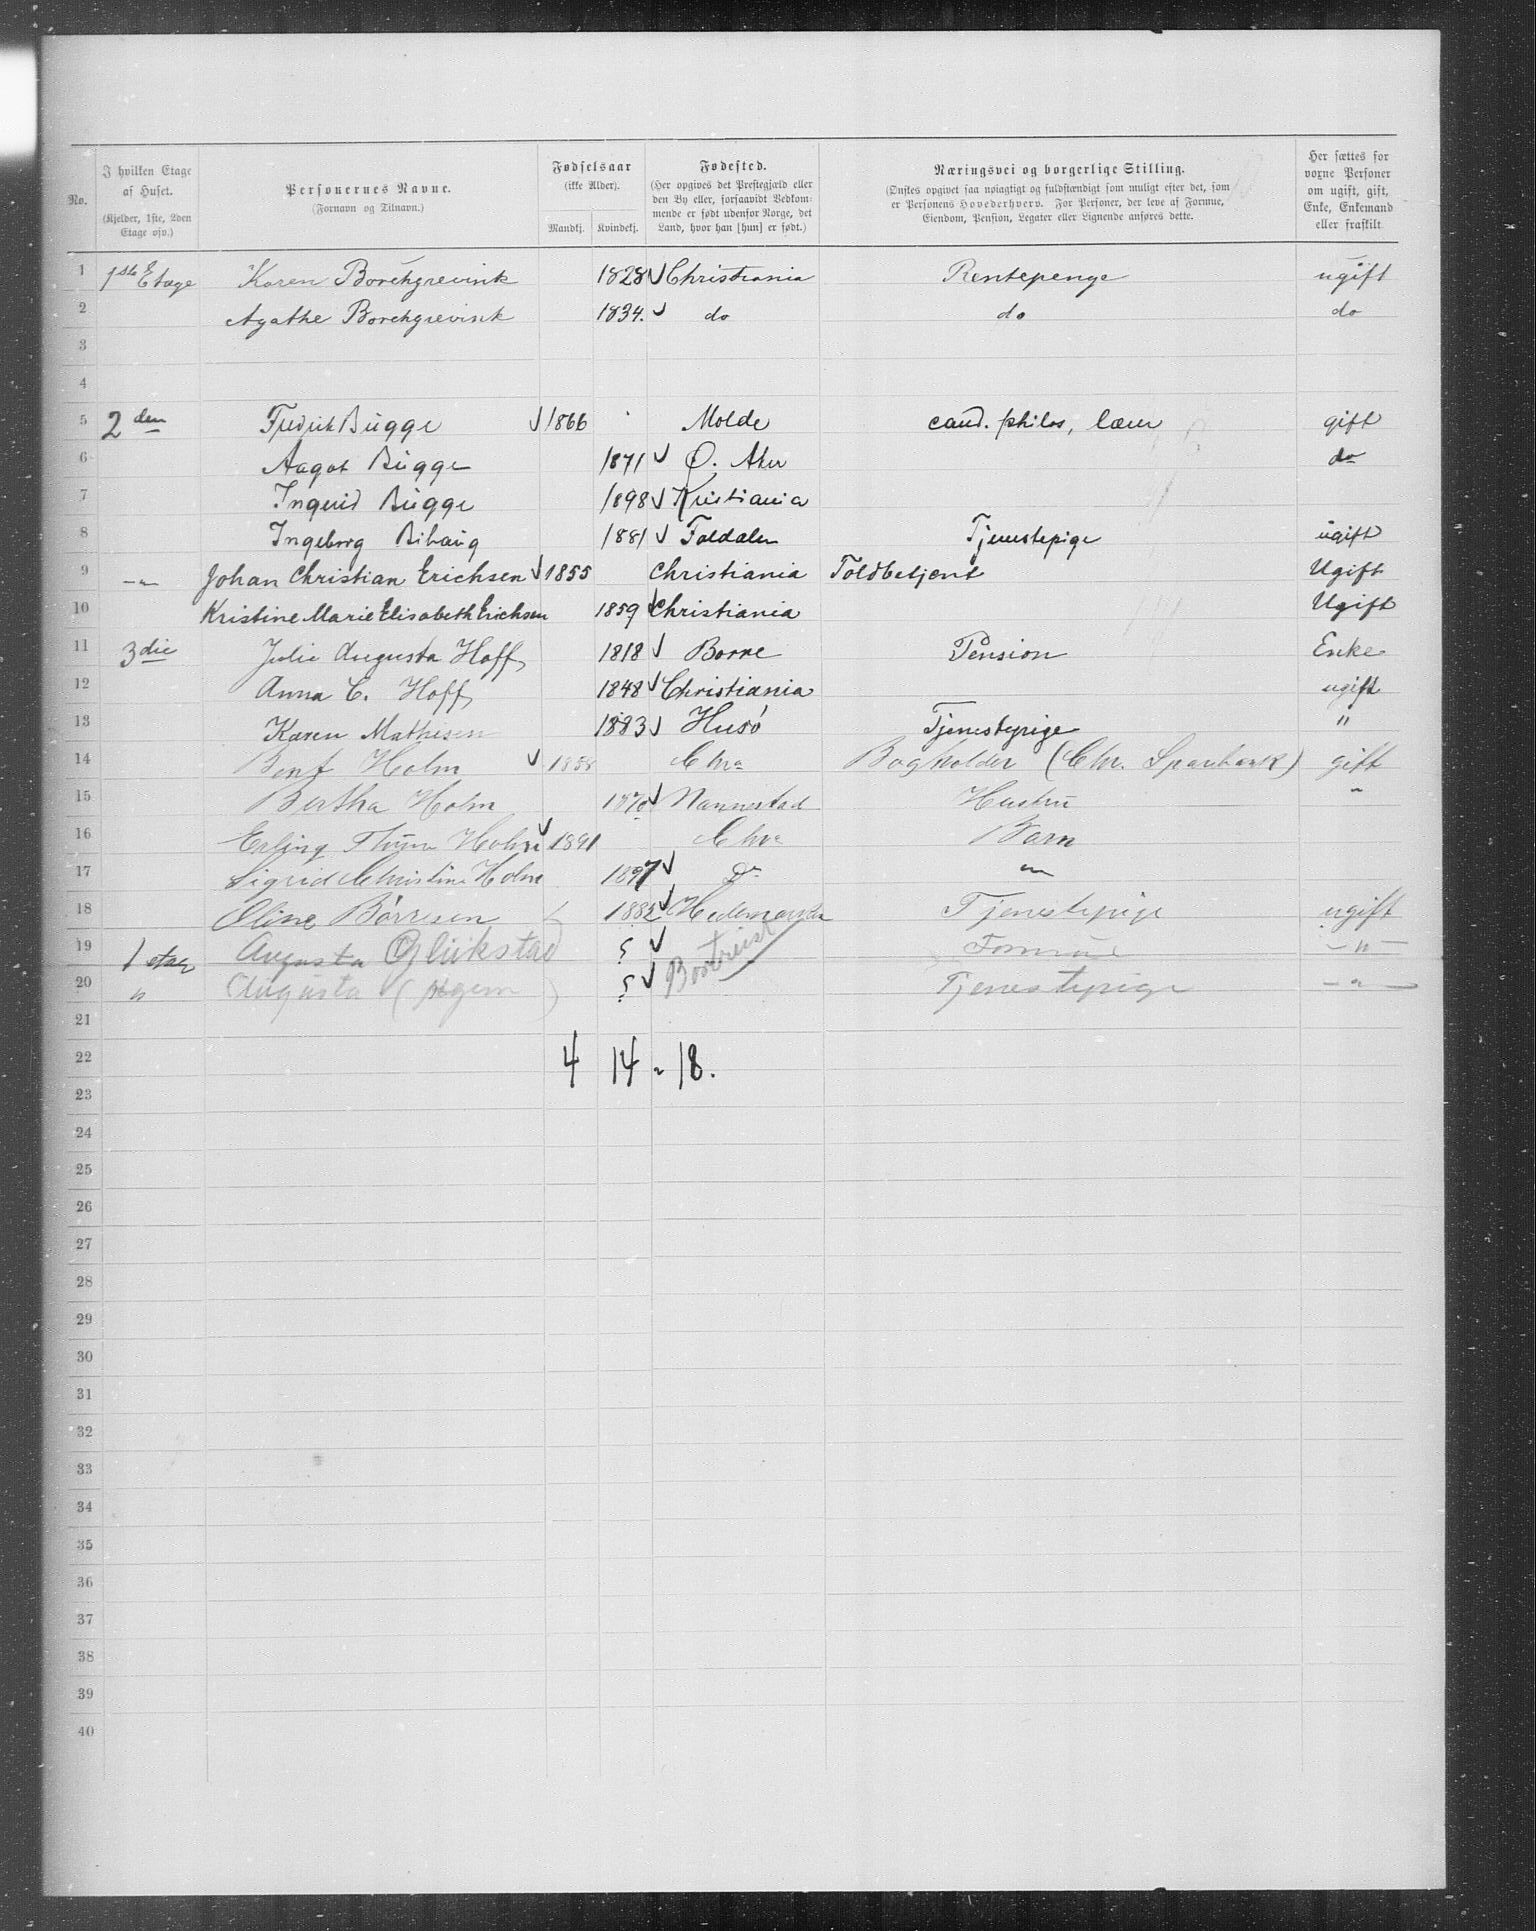 No.
I hvilken Etage af Huset.
(Kjelder, 1ste, 2den Etage osv.)
Personernes Navne.
(Fornavn og Tilnavn.)
Fødselsaar
(ikke Alder).
Mandkj. Kvindekj.
Fødested.
(Her opgives det Prestegjæld eller
den By eller, forsaavidt Vedkom-
mende er født udenfor Norge, det
Land, hvor han [hun] er født.)
Næringsvei og borgerlige Stilling.
(Ønskes opgivet saa nøiagtigt og fuldstændigt som muligt efter det, som
er Personens Hovederhverv. For Personer, der leve af Formue,
Eiendom, Pension, Legater eller Lignende anføres dette.
Her sættes for
voxne Personer
om ugift, gift,
Enke, Enkemand
eller fraskilt
1 1ste Etage Karen Borchgrevink 1828 ✓ Christiania Rentepenge ugift
2 Agathe Borchgrevink 1834. ✓ do do do
3
4
5 2den Fredrik Bugge ✓ 1866 Molde cand. philos, lærer gift
6 Aagot Bugge 1871 ✓ Ø. Aker do
7 Ingrid Bugge 1898 ✓ Kristiania
8 Ingeborg Bihaug 1881 ✓ Foldalen Tjenestepige ugift
9 -"- Johan Christian Erichsen ✓ 1855 Christiania Toldbetjent Ugift
10 Kristine Marie Elisabeth Erichsen 1859 ✓ Christiania Ugift
11 3die Julie Augusta Hoff 1818 ✓ Borre Pension Enke
12 Anna C. Hoff 1848 ✓ Christiania ugift
13 Karen Mathisen 1883 ✓ Husö Tjenestepige "
14 Bent Holm ✓ 1858 Chra Bogholder (Chr. Sparebank) gift
15 Bertha Holm 1870 ✓ Nannestad Hustru "
16 Erling Thune Holm ✓ 1891 Chra Barn
17 Sigrid Christine Holm 1897 ✓ Do "
18 Oline Børresen 1882 ✓ Hedemarken Tjenestepige ugift
19 1 etag Augusta Glükstad ? ✓ Bortreist Formue -"-
20 " Augusta (igjem) ? ✓ Tjenestepige -"-
21
22 4 14 = 18.
23
24
25
26
27
28
29
30
31
32
33
34
35
36
37
38
39
40